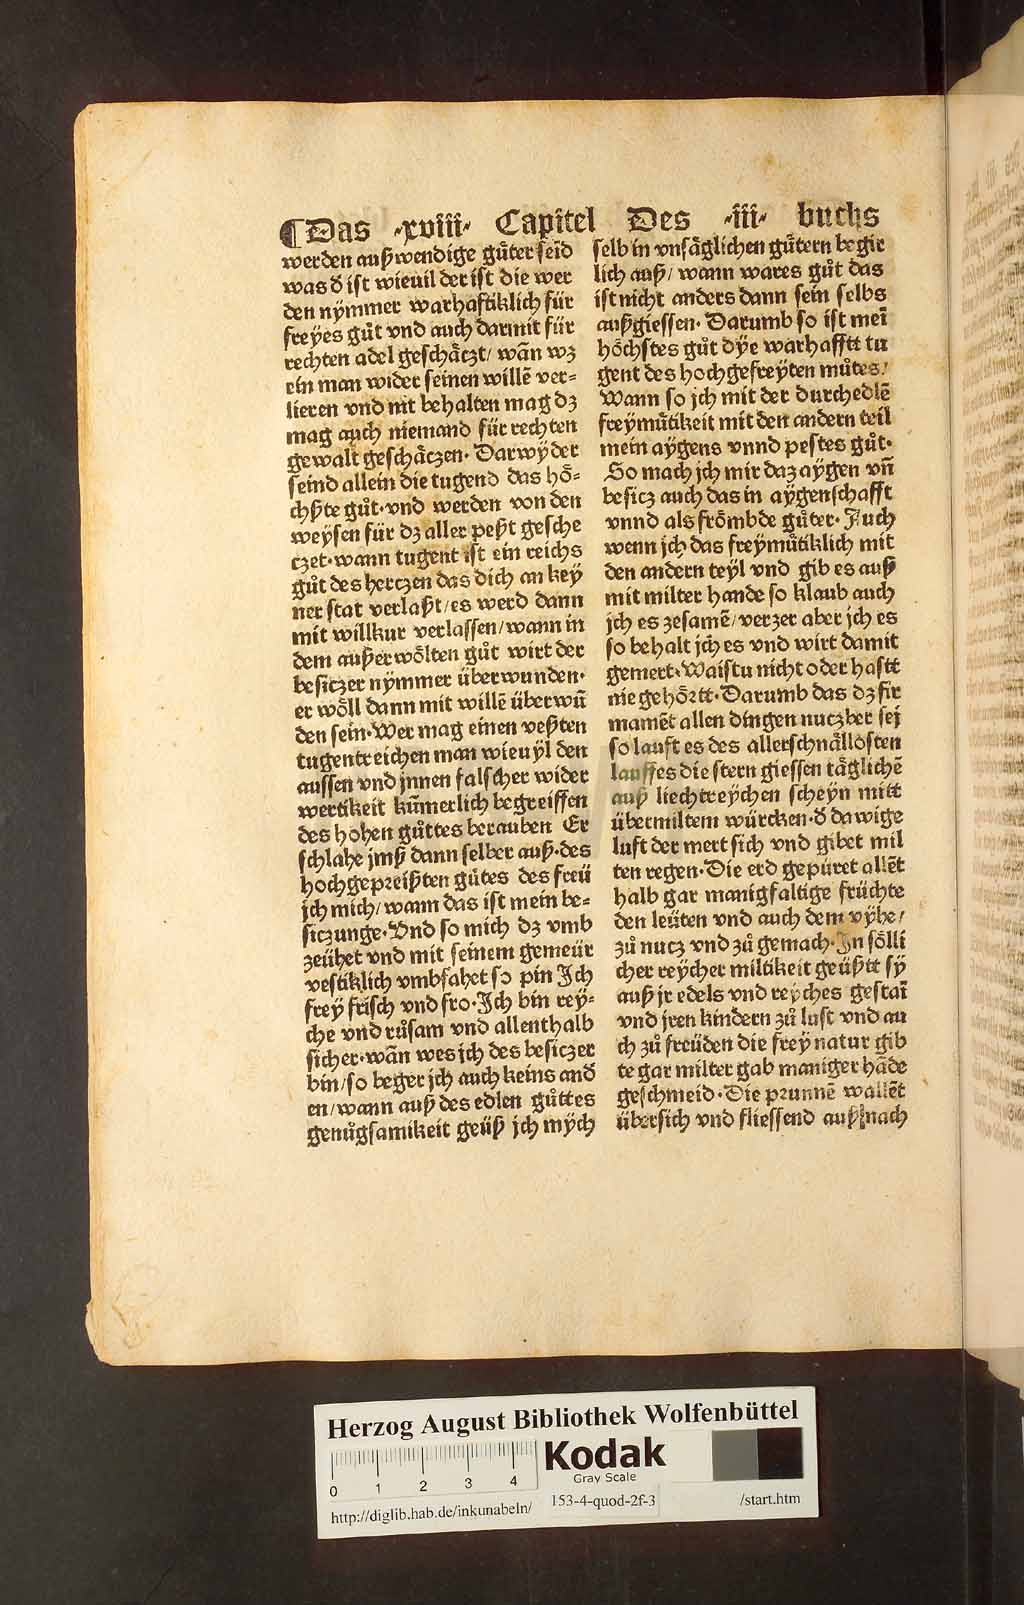 ¶Das ·xviii· Capitel Des ·iii· buchs
werden außwendige gůter seīd
was ð ist wieuil der ist die wer
den nÿmmer warhaftiklich für
freÿes gůt vnd auch darmit für
rechten adel geschåczt/ wān wz
ein man wider seinen willē ver⸗
lieren vnd nit behalten mag dz
mag auch niemand für rechten
gewalt geschåczen· Darwÿder
seind allein die tugend das hő⸗
chßte gůt· vnd werden von den
weÿsen für dz aller peßt gesche
czet· wann tugent ist ein reichs
gůt des herczen das dich an keÿ
ner stat verlaßt/ es werd dann
mit willkur verlassen/ wann in
dem außerwőlten gůt wirt der
besiczer nÿmmer überwunden·
er wőll dann mit willē überwū
den sein· Wer mag einen veßten
tugentreichen man wieuÿl den
aussen vnd jnnen falscher wider
wertikeit kūmerlich begreiffen
des hohen gůttes berauben Er
schlahe jmß dann selber auß· des
hochgepreißten gůtes des freü
jch mich/ wann das ist mein be⸗
siczunge· Vnd so mich dz vmb
zeühet vnd mit seinem gemeür
vestiklich vmbfahet so pin Ich
freÿ frisch vnd fro· Ich bin reÿ⸗
che vnd růsam vnd allenthalb
sicher· wān wes jch des besiczer
bin/ so beger jch auch keins anð
en/ wann auß des edlen gůttes
genůgsamikeit geüß jch mÿch
selb in vnsåglichen gůtern begir
lich auß/ wann wares gůt das
ist nicht anders dann sein selbs
außgiessen· Darumb so ist meī
hőchstes gůt dÿe warhafftt tu
gent des hochgefreÿten můtes/
Wann so jch mit der durchedlē
freÿmůtikeit mit den andern teil
mein aÿgens vnnd pestes gůt·
So mach jch mir daz aÿgen vñ
besicz auch das in aÿgenschafft
vnnd als frőmbde gůter· Auch
wenn jch das freÿmůtiklich mit
den andern teÿl vnd gib es auß
mit milter hande so klaub auch
jch es zesamē/ verzer aber jch es
so behalt jch es vnd wirt damit
gemert· Waistu nicht oder hastt
nie gehőrtt· Darumb das dz fir
mamēt allen dingen nuczber sej
so lauft es des allerschnållősten
lauffes die stern giessen tåglichē
auß liechtreÿchen scheÿn mitt
übermiltem würcken· ð dawige
luft der mert sich vnd gibet mil
ten regen· Die erd gepüret allēt
halb gar manigfaltige früchte
den leüten vnd auch dem vÿhe/
zů nucz vnd zů gemach· In sőlli
cher reÿcher miltikeit geüßtt sÿ
auß jr edels vnd reÿches gestaī
vnd jren kindern zů lust vnd au
ch zů freüden die frey natur gib
te gar milter gab maniger hāde
geschmeid· Die prunnē wallēt
übersich vnd fliessend auß nach
Herzog August Bibliothek Wolfenbüttel
Kodak
Gray Scale
0 1 2 3 4
http://diglib.hab.de/inkunabeln/ 153-4-quod-2f-3 /start.htm